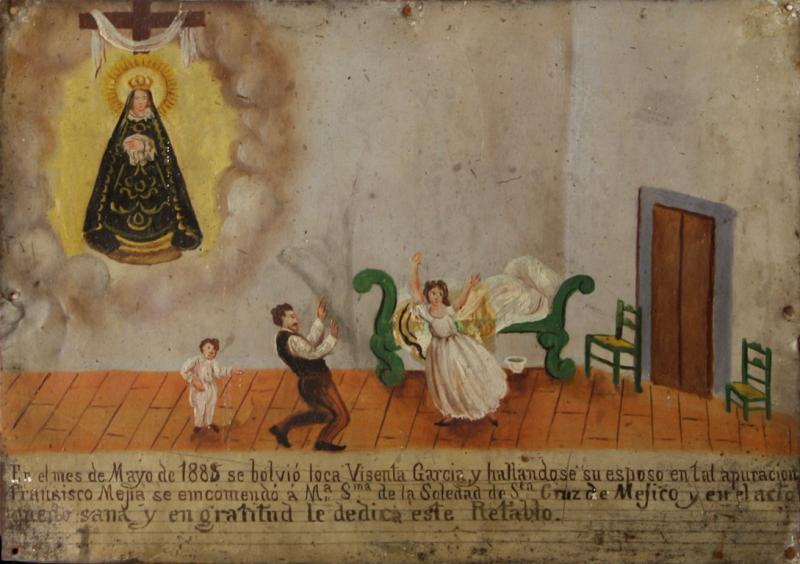 En el mes de Mayo de 1888 se bolvió loca Visenta Garcia, y hallandose su esposo en tal apuracion
Fransisco Mejia se emcomendó a Mª Sma de la Soledad de Sta Cruz de Mejico y en el acto
sana y en gratitud le dedica este Retablo.